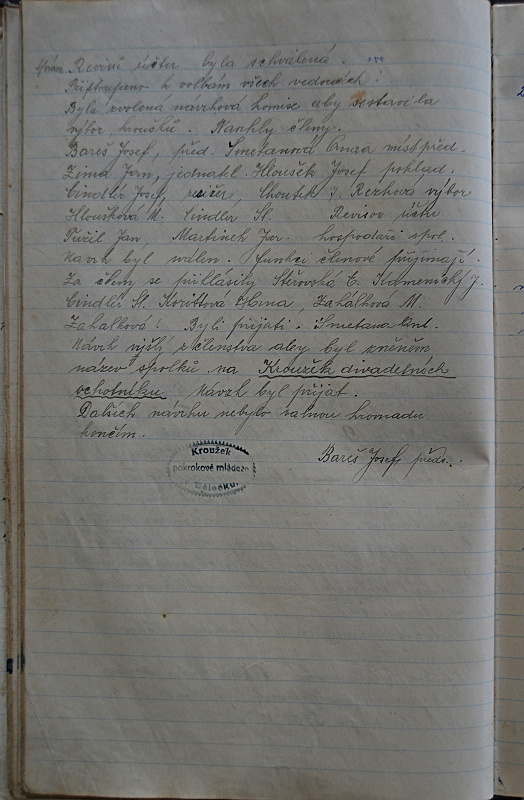 zpráva Revisí účtu byla schválená.
Přistoupeno k volbám všech vedoucích:
Byla zvolena návrhová komise aby sestavila
výbor kroužků. Navrhly členy.
Bareš Josef, před. Smetanová Anna místpřed.
Zima Jan, jednatel. Hloušek Josef poklad.
Cindler Josef, režiser, Choutk J. Rezkova výbor
Hloušková M. Cindler St. Revisoř účtu
Tuzil Jan, Martinek Jar. hospodáři spol.
Návrh byl volen. funkci členové přijímají.
Za členy se přihlásily Stěrovská E. Kamenický J.
Cindler St. Korittová Glena, Zahálková M.
Zahálková! Byli přijati. Smetana Ant.
Návrh výšlý z členstva aby byl změněn
název spolků na Kroužek divadelních
ochotníku. Návrh byl přijat.
Dalších návrhu nebylo valnou hromadu
končím.
Bareš Josef, předs.
Kroužek
pokrokové mládeže